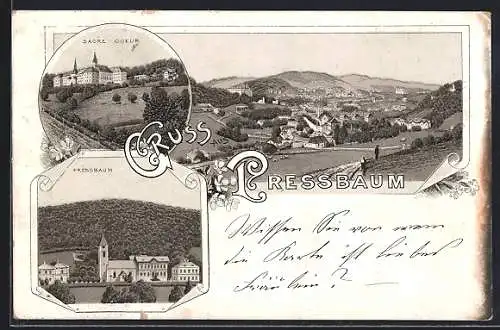 SACRE COEUR
GRUSS
PRESSBAUM
PRESSBAUM
Wissen Sie von wem
die Karte ist liebes
Fräulein?